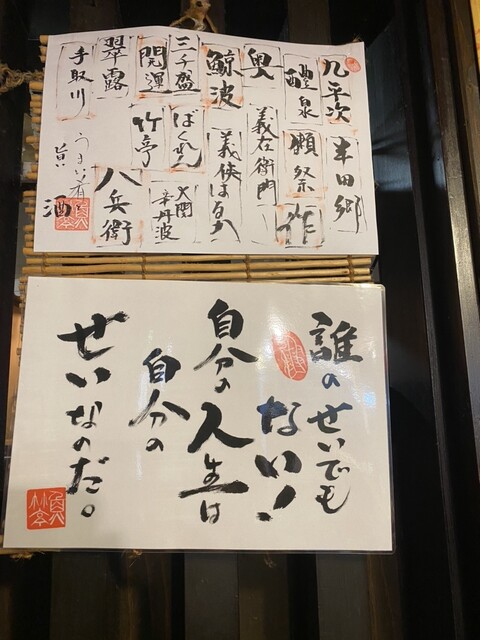 九平次
半田郷
醴泉
獺祭
作
奥
義左衛門
鯨波
義侠はるか
三千盛
ばくれん
大関
辛丹波
開運
竹亭
翠露
八兵衛
手取川
うまい肴に
旨酒
誰のせいでも
ない!
自分の人生は
自分の
せいなのだ。